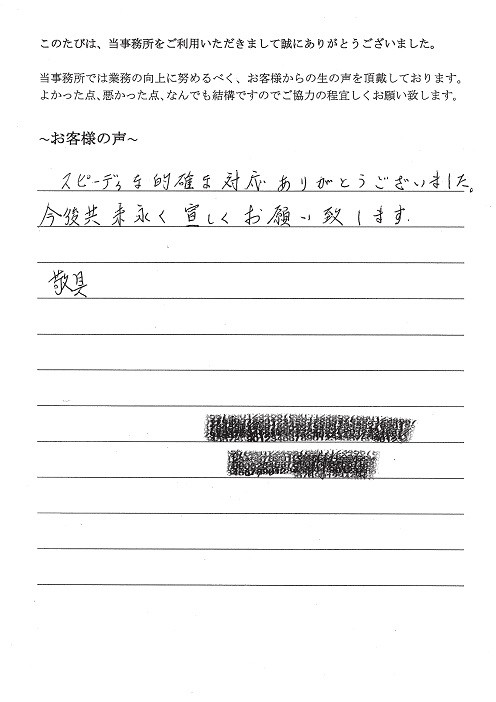 このたびは、当事務所をご利用いただきまして誠にありがとうございました。
当事務所では業務の向上に努めるべく、お客様からの生の声を頂戴しております。
よかった点、悪かった点、なんでも結構ですのでご協力の程宜しくお願い致します。
~お客様の声~
スピーディな的確な対応ありがとうございました。
今後共末永く宜しくお願い致します.
敬具